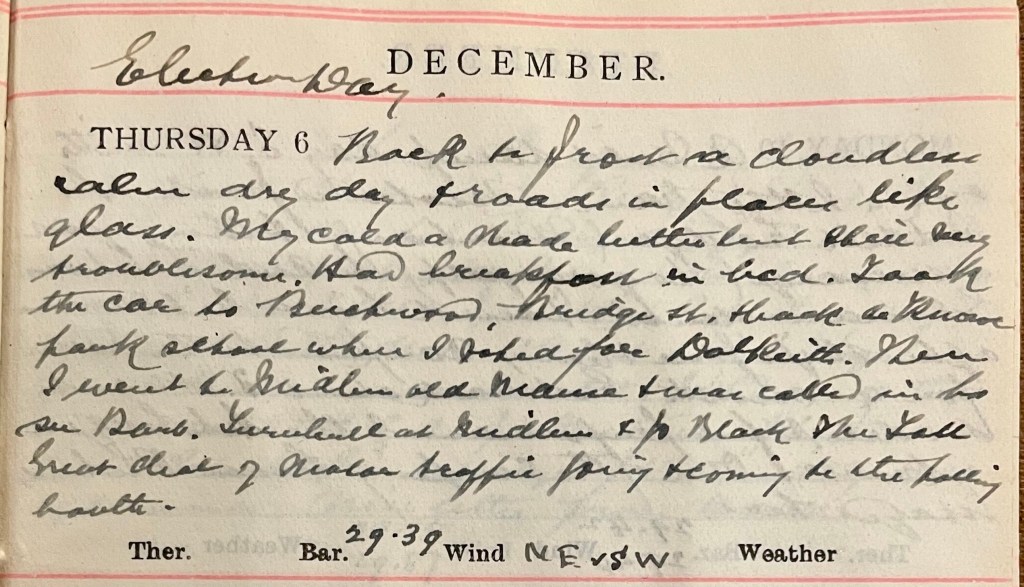 DECEMBER.
Election Day.
THURSDAY 6 Back to frost a cloudless
calm dry day & roads in places like
glass. My cold a shade better but still very
troublesome. Had breakfast in bed. Took
the car to Beechwood, Bridge St. & back to Know
park school where I voted for Dalkeith. Then
I went to Midlem old Manse & was called in to
see Barb. Turnbull at Midlem & Jo Black The Loll
Great deal of Motor traffic going & coming to the polling
booth.
Ther. Bar. 29.39 Wind NE SW Weather